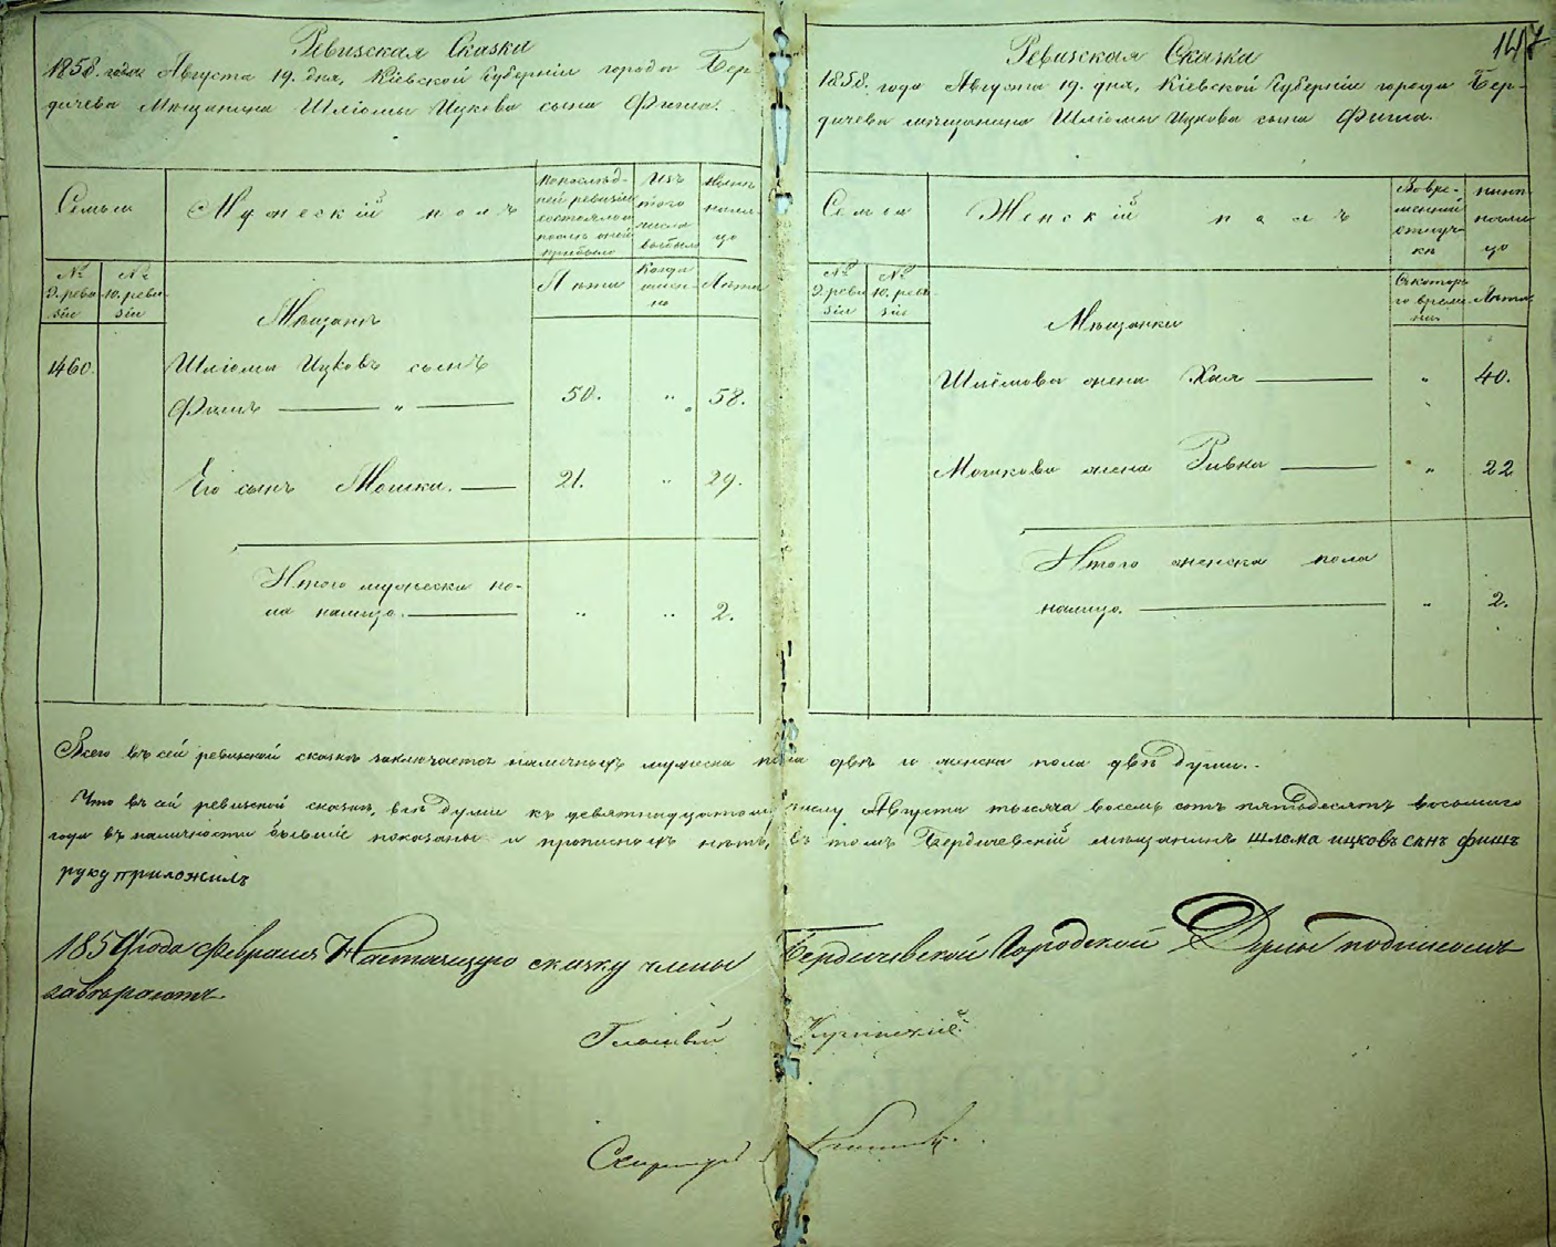 Ревизская Сказка
1858. года Августа 19. дня, Кіевской Губерніи города Бер-
дичева Мещанина Шліомы Ицкова сына Фиша.
Семьи
Мужескій полъ
По послѣд-
ней ревизіи
состояло и
послѣ оной
прибыло
Изъ
того
числа
выбыло
Нынѣ
нали-
цо
№
9. реви-
зіи
№
10. реви-
зіи
Мѣщане
Лѣта
Когда
имен-
но
Лѣта
1460.
Шліома Ицковъ сынъ
Фишъ „ 50. „ 58.
Его сынъ Мошко. 21. „ 29.
Итого мужеска по-
ла налицо. „ „ 2.
147
Ревизская Сказка
1858. года Августа 19. дня, Кіевской Губерніи города Бер-
дичева мещанина Шліомы Ицкова сына Фиша.
Семьи
Женскій полъ
Во вре-
менной
отлуч-
кѣ
нынѣ
нали-
цо
№
9. реви-
зіи
№
10. реви-
зіи
Мѣщанки
Съ котора-
го време-
ни
Лѣта
Шліомова жена Хая „ 40.
Мошкова жена Ривка „ 22
Итого женска пола
налицо. „ 2.
Всего въ сей ревизской сказкѣ заключается наличныхъ мужеска пола двѣ и женска пола двѣ души.
Что въ сей ревизской сказкѣ, всѣ души къ девятнадцатому числу Августа тысяча восемь сотъ пятьдесятъ восьмаго
года въ наличности бывшіе показаны и прописныхъ нѣтъ, въ томъ Бердичевскій мещанинъ Шлома ицковъ сынъ фишъ
руку приложилъ
1859 года Февраля Настоящую сказку члены Бердичевской Городской Думы подписомъ
завѣряютъ.
Гласный
Секретарь